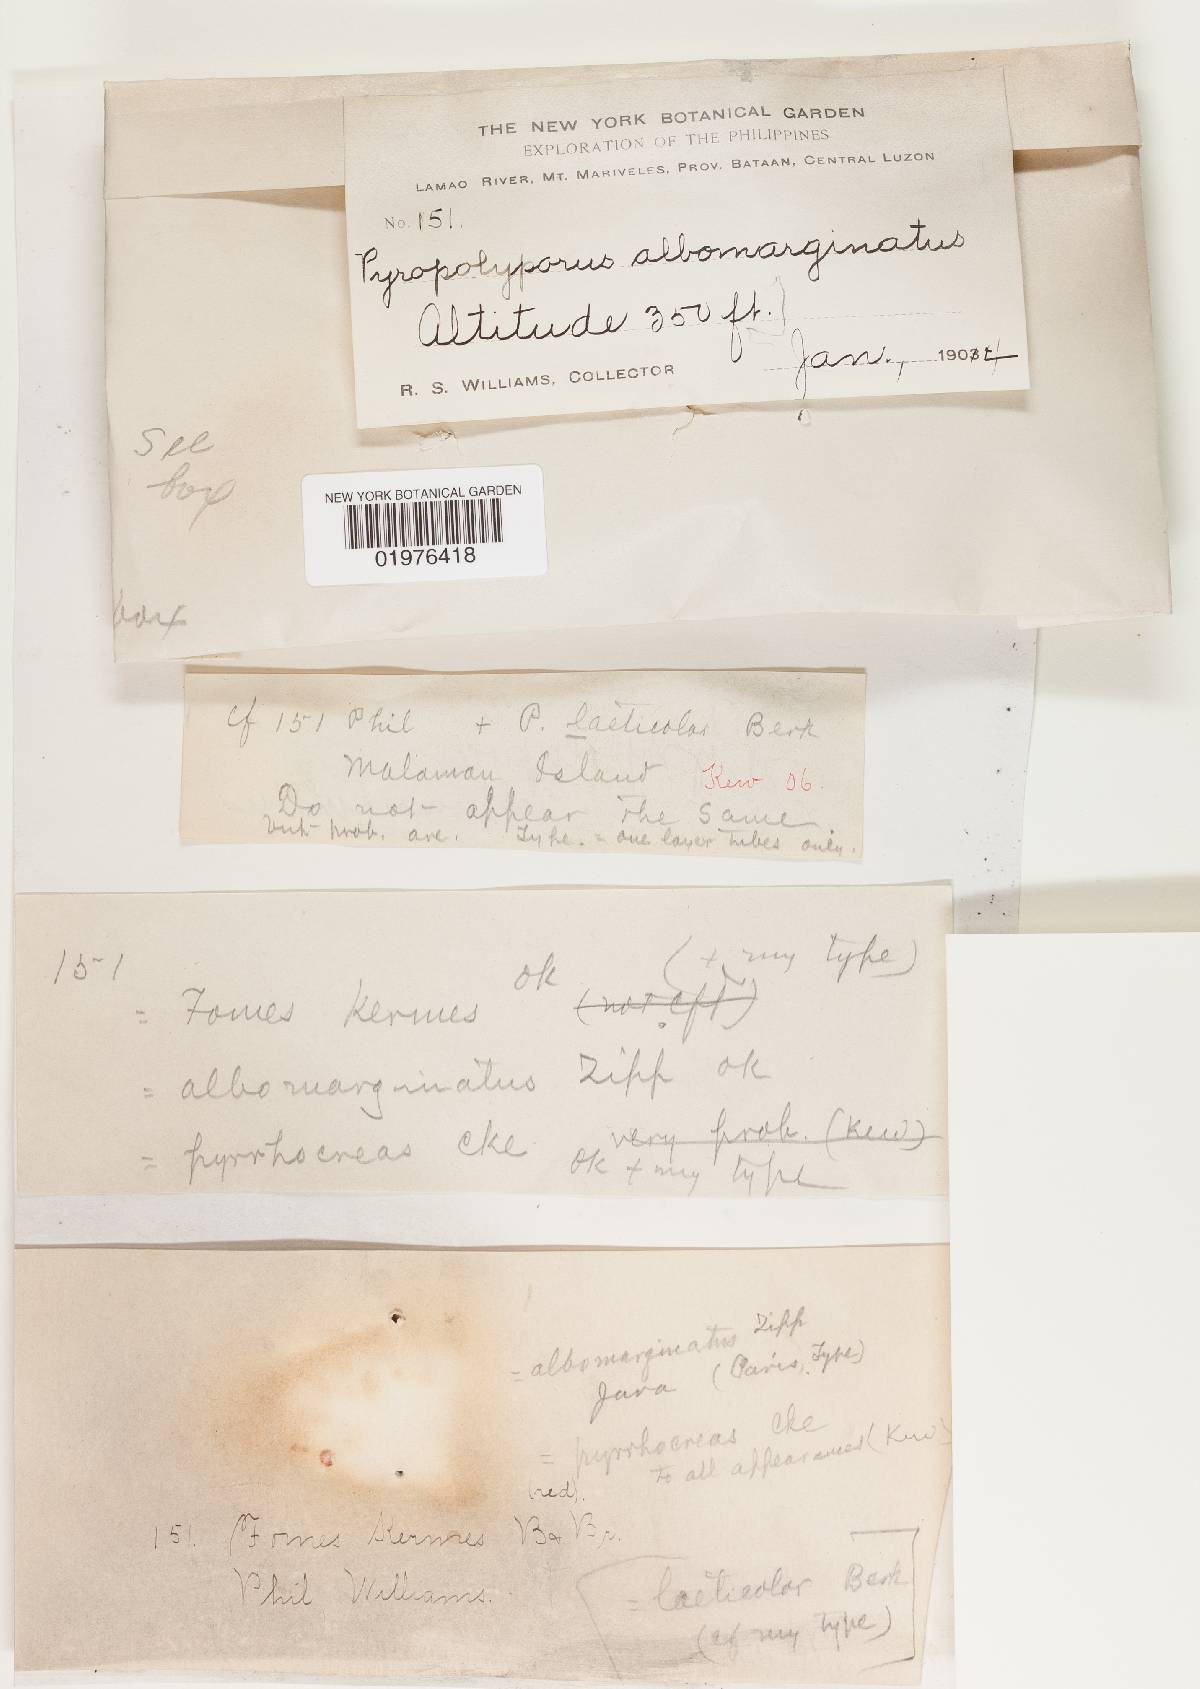 THE NEW YORK BOTANICAL GARDEN
EXPLORATION OF THE PHILIPPINES
LAMAO RIVER, MT. MARIVELES, PROV. BATAAN, CENTRAL LUZON
No. 151.
Pyropolyporus albomarginatus
Altitude 350 ft.
Jan., 1904
R. S. WILLIAMS, COLLECTOR
See
box
NEW YORK BOTANICAL GARDEN
01976418
box
cf 151 Phil + P. laeticolor Berk
Malaman Island Kew 06.
Do not appear the same.
but prob. are. Type. = one layer tubes only.
151
(+ my type)
= Fomes Kermes ok (not cft)
= albomarginatus Zipp ok
= pyrrhocreas cke very prob. (Kew)
ok + my type
= albomarginatus Zipp
Java (Paris, Type)
= pyrrhocreas cke
to all appearances (Kew)
(red).
151. Fomes Kermes B & Br.
Phil Williams.
= laeticolor Berk
(cf my type)